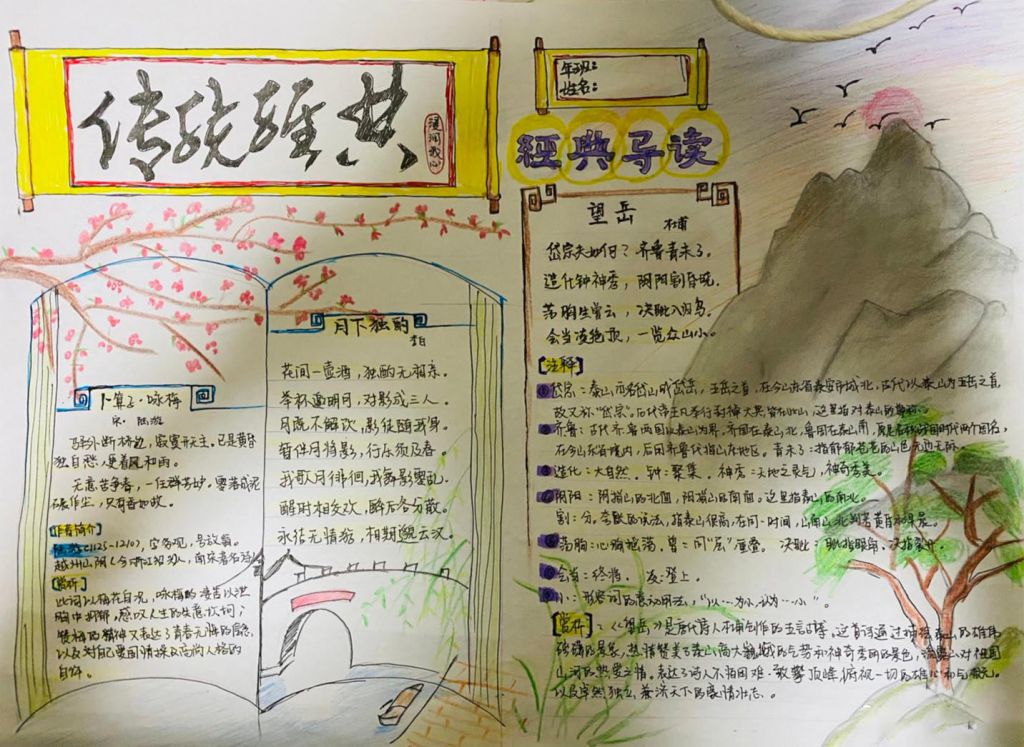 传统经典
浸润我心
年班：
姓名：
經典导读
卜算子·咏梅
宋·陆游
驿外断桥边，寂寞开无主，已是黄昏
独自愁，更著风和雨。
无意苦争春，一任群芳妒。零落成泥
碾作尘，只有香如故。
[作者简介]
陆游(1125-1210)，字务观，号放翁。
越州山阴(今浙江绍兴)人，南宋著名诗
[赏析]
此词以梅花自况，咏梅的凄苦以泄
胸中抑郁，感叹人生的失意坎坷；
赞梅的精神又表达了青春无悔的信念，
以及对自己爱国情操及高尚人格的
自许。
月下独酌
李白
花间一壶酒，独酌无相亲。
举杯邀明月，对影成三人。
月既不解饮，影徒随我身。
暂伴月将影，行乐须及春。
我歌月徘徊，我舞影零乱。
醒时相交欢，醉后各分散。
永结无情游，相期邈云汉。
望岳
杜甫
岱宗夫如何？齐鲁青未了。
造化钟神秀，阴阳割昏晓。
荡胸生曾云，决眦入归鸟。
会当凌绝顶，一览众山小。
[注释]
岱宗：泰山，亦名岱山或岱岳，五岳之首，在今山东省泰安市城北，古代以泰山为五岳之首，
故又称“岱宗”。历代帝王凡举行封禅大典，皆在此山，这里指对泰山的尊称。
齐鲁：古代齐鲁两国以泰山为界，齐国在泰山北，鲁国在泰山南，原是春秋战国时代两个国名，
在今山东省境内，后用齐鲁代指山东地区。青未了：指郁郁苍苍的山色无边无际。
造化：大自然。钟：聚集。神秀：天地之灵气，神奇秀美。
阴阳：阴指山的北面，阳指山的南面。这里指泰山的南北。
割：分。夸张的说法，指泰山很高，在同一时间，山南山北判若黄昏和早晨。
荡胸：心胸摇荡。曾：同“层”，重叠。决眦：眦指眼角，决指裂开。
会当：终当。凌：登上。
小：形容词的意动用法，“以…为小，认为…小”。
[赏析]：《望岳》是唐代诗人杜甫创作的五言古诗。这首诗通过描绘泰山的雄伟
磅礴的景象，热情赞美了泰山高大巍峨的气势和神奇秀丽的景色，流露出对祖国
山河的热爱之情，表达了诗人不怕困难、敢攀顶峰、俯视一切的雄心和气概，
以及卓然独立、兼济天下的豪情壮志。